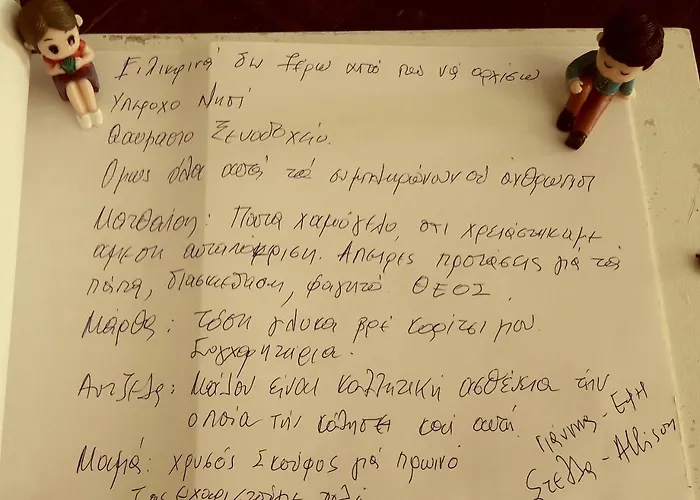 Ειλικρινά δεν ξέρω από που να αρχίσω
Υπέροχο Νησί
Θαυμάσιο Ξενοδοχείο.
Όμως όλα αυτά τα συμπληρώνουν οι άνθρωποι
Ματθαίος: Πάντα χαμόγελο, ότι χρειάστηκαμε
άμεση ανταπόκριση. Άπειρες προτάσεις για τα
πάντα, διασκέδαση, φαγητό. ΘΕΟΣ.
Μάρθα: Τόση γλύκα βρε κορίτσι μου.
Συγχαρητήρια.
Αντζελα: Μάλλον είναι κολλητική ασθένεια την
οποία την κόλησε και αυτή.
Μαμά: χρυσός Σκούφος για πρωινό
Σας ευχαριστούμε πολύ
Γιάννης - Έφη
Στέλλα - Allison